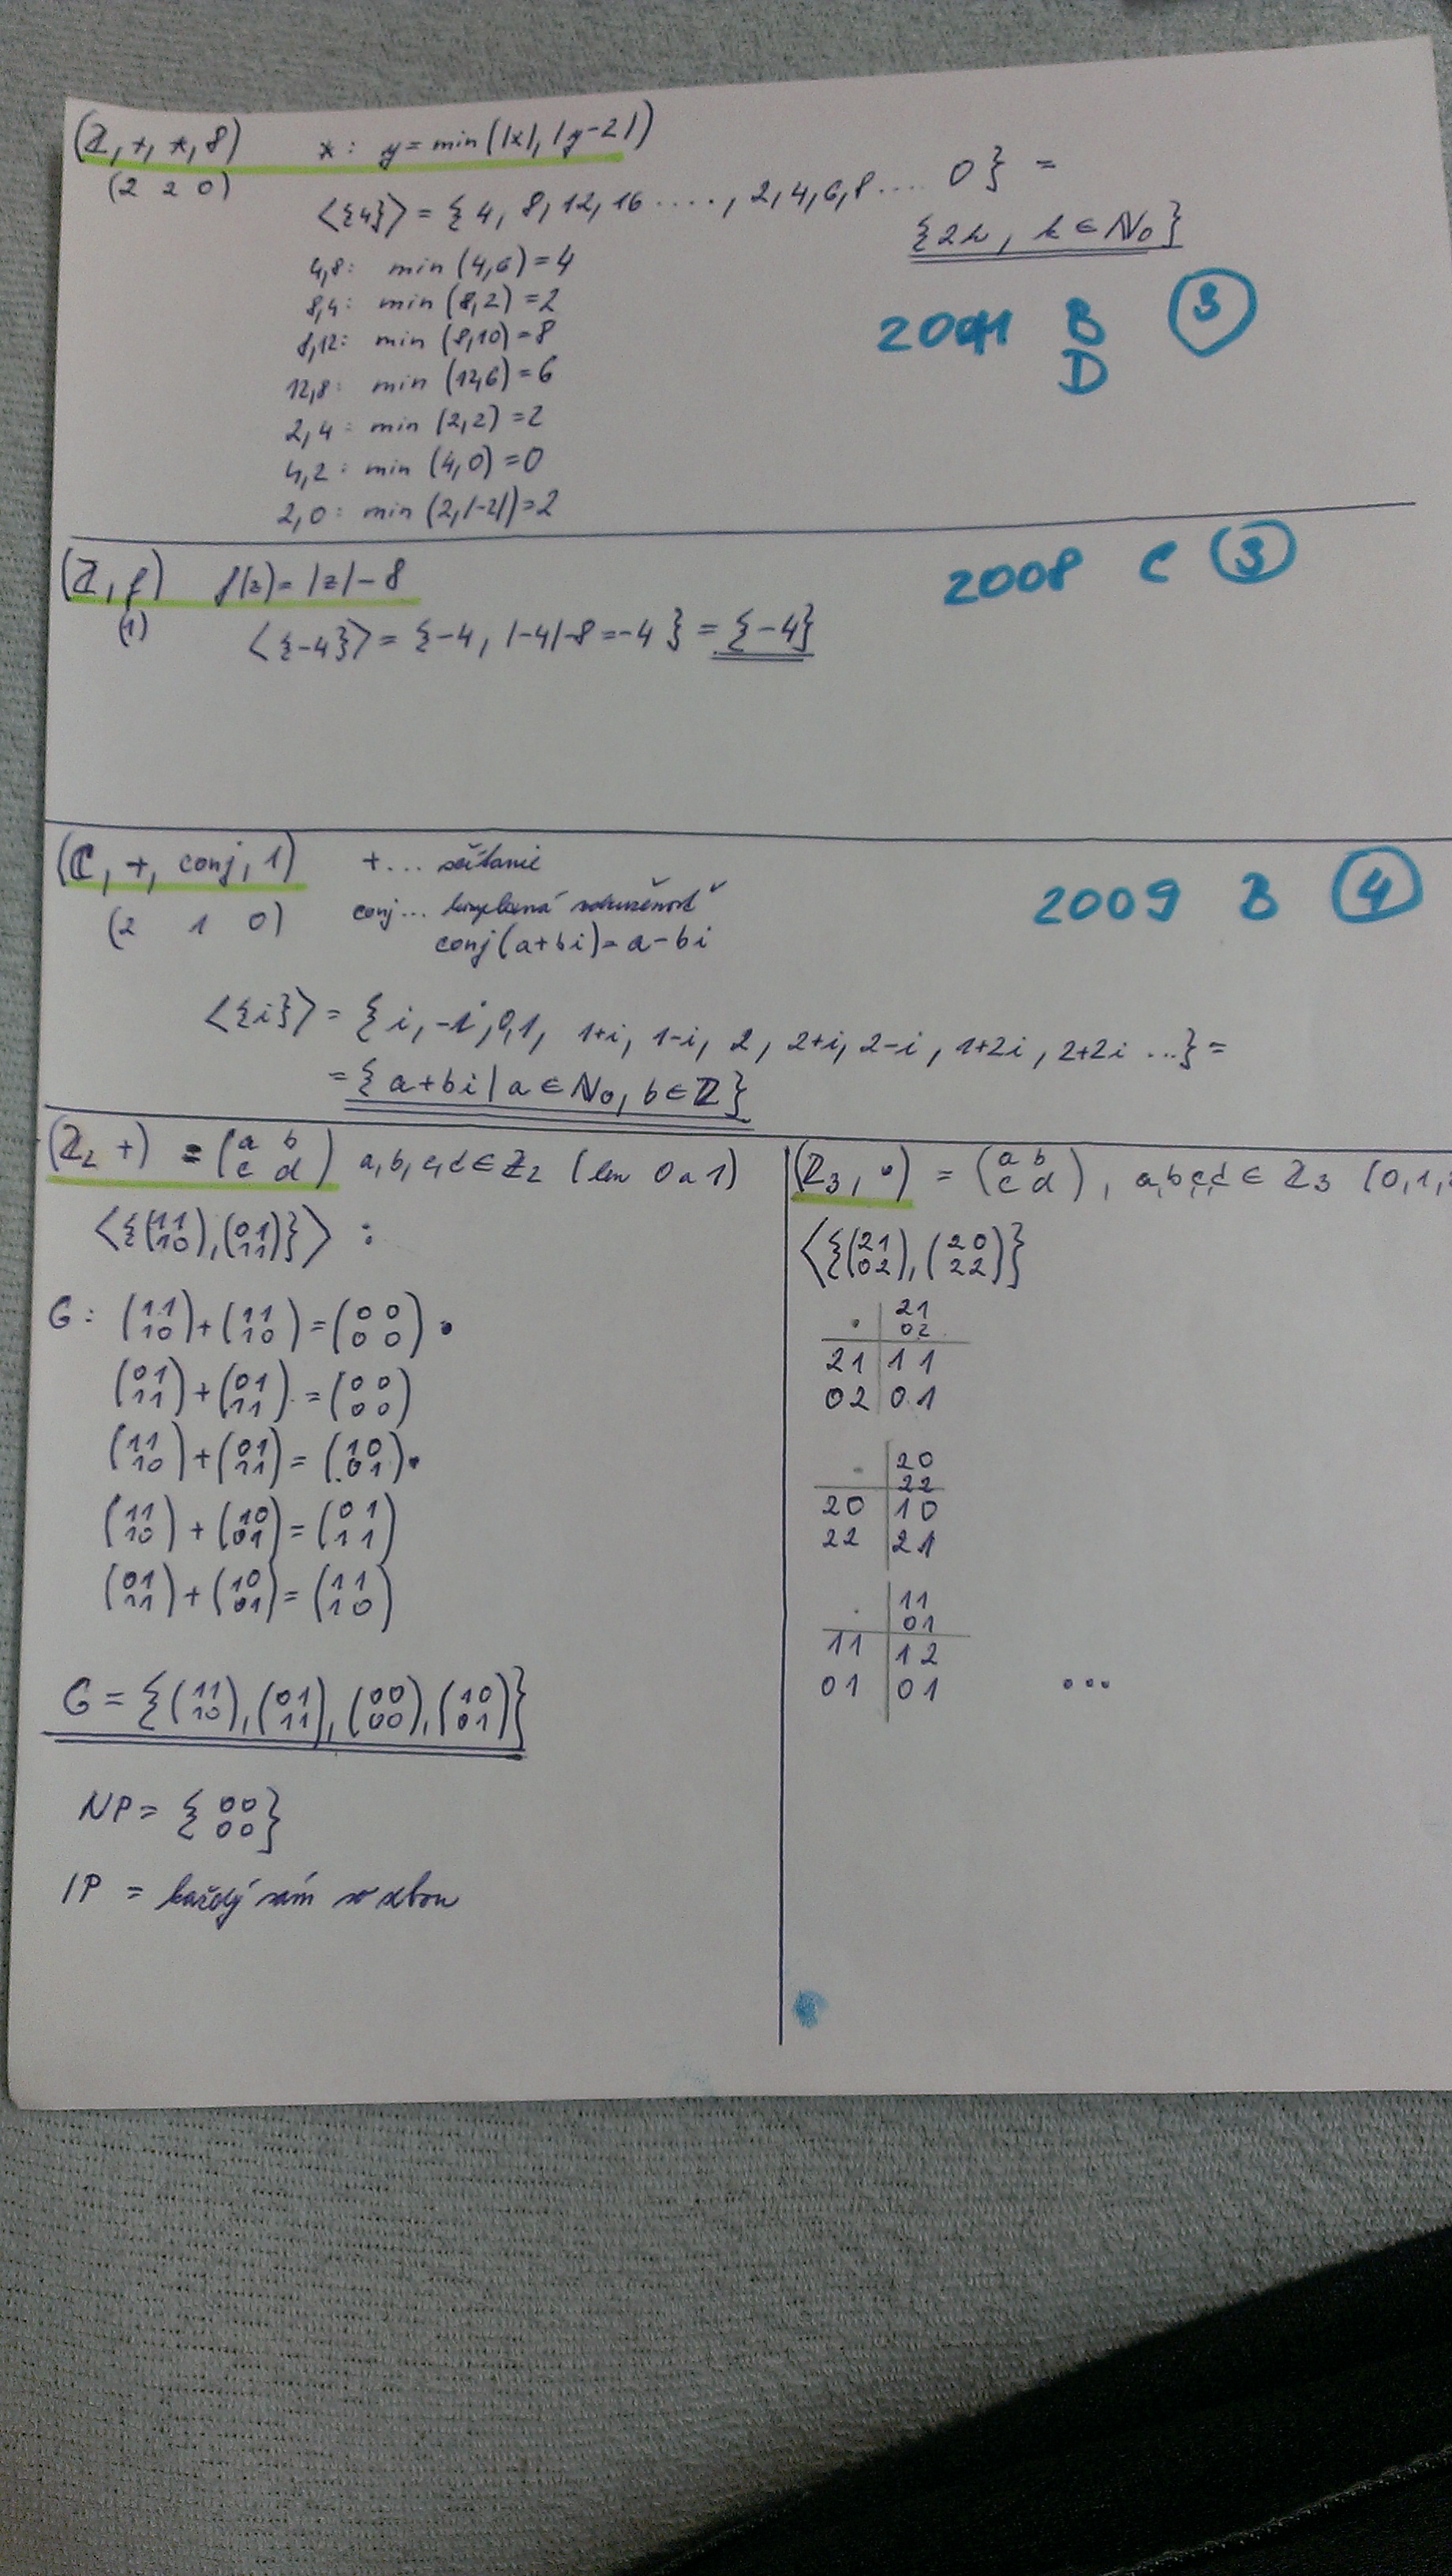 (ℤ, +, *, 8) *: y = min(|x|, |y-2|)
(2 2 0)
⟨{4}⟩ = { 4, 8, 12, 16 ...., 2, 4, 6, 8 .... 0 } =
{2k, k ∈ ℕ₀}
4,8: min (4,6) = 4
8,4: min (8,2) = 2
8,12: min (8,10) = 8
12,8: min (12,6) = 6
2,4: min (2,2) = 2
4,2: min (4,0) = 0
2,0: min (2,|-2|) = 2
2011 B 3
D
(ℤ, f) f(z) = |z| - 8
(1)
⟨{-4}⟩ = {-4, |-4|-8 = -4 } = {-4}
2008 C 3
(ℂ, +, conj, 1) + ... sčítanie
(2 1 0) conj ... komplexná združenosť
conj(a+bi) = a-bi
2009 B 4
⟨{i}⟩ = { i, -i, 0, 1, 1+i, 1-i, 2, 2+i, 2-i, 1+2i, 2+2i ...} =
= { a+bi | a ∈ ℕ₀, b ∈ ℤ }
(ℤ₂ +) = (a b
c d) a, b, c, d ∈ ℤ₂ (len 0 a 1)
⟨{(11
10), (01
11)}⟩ :
G: (11
10) + (11
10) = (0 0
0 0) •
(01
11) + (01
11) = (0 0
0 0)
(11
10) + (01
11) = (10
01) •
(11
10) + (10
01) = (0 1
1 1)
(01
11) + (10
01) = (11
10)
G = {(11
10), (01
11), (00
00), (10
01)}
NP = { 00
00 }
IP = každý sám so sebou
(ℤ₃, •) = (a b
c d), a,b,c,d ∈ ℤ₃ (0,1,
⟨{(21
02), (20
22)}
21
• 02
21 11
02 01
20
• 22
20 10
22 21
11
• 01
11 12
01 01
...